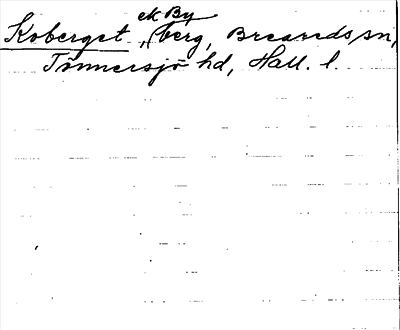 ek By
Koberget, (berg, Breareds sn,
Tönnersjö hd, Hall. l.